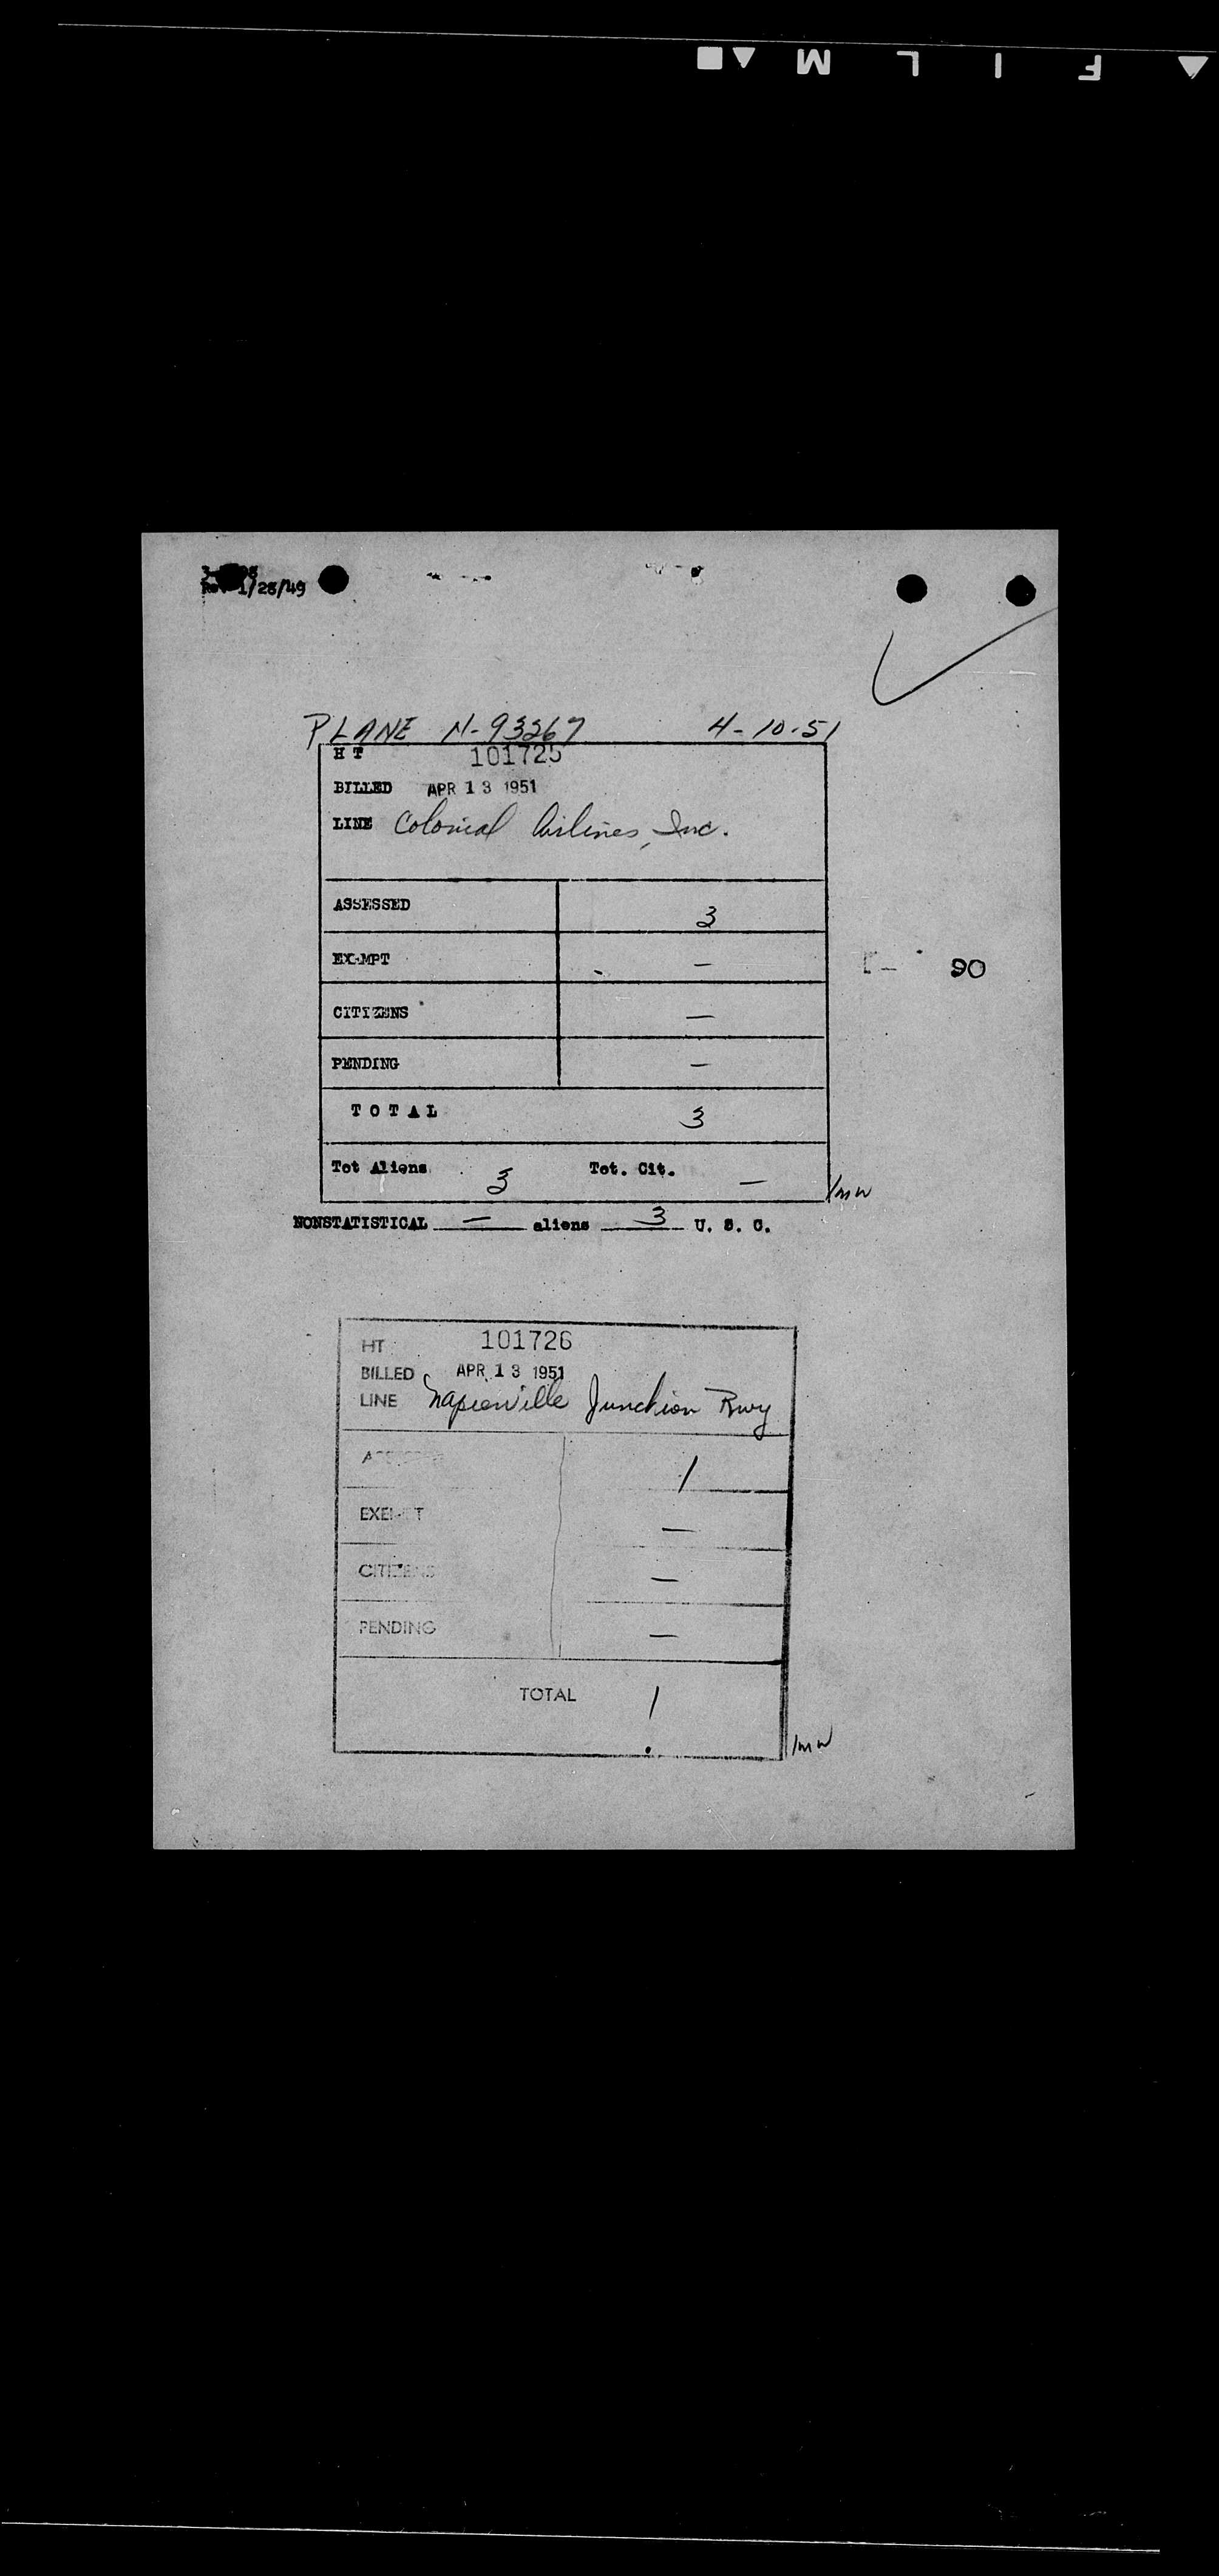 FILM
Rev 1/28/49
PLANE N-93267 4-10-51
HT 101725
BILLED APR 13 1951
LINE Colonial Airlines, Inc.
ASSESSED 3
EXEMPT —
CITIZENS —
90
PENDING —
TOTAL 3
Tot Aliens 3 Tot. Cit. —
/mw
NONSTATISTICAL — aliens 3 U. S. C.
HT 101726
BILLED APR 13 1951
LINE Napierville Junction Rwy
ASSESSED 1
EXEMPT —
CITIZENS —
PENDING —
TOTAL 1
/mw